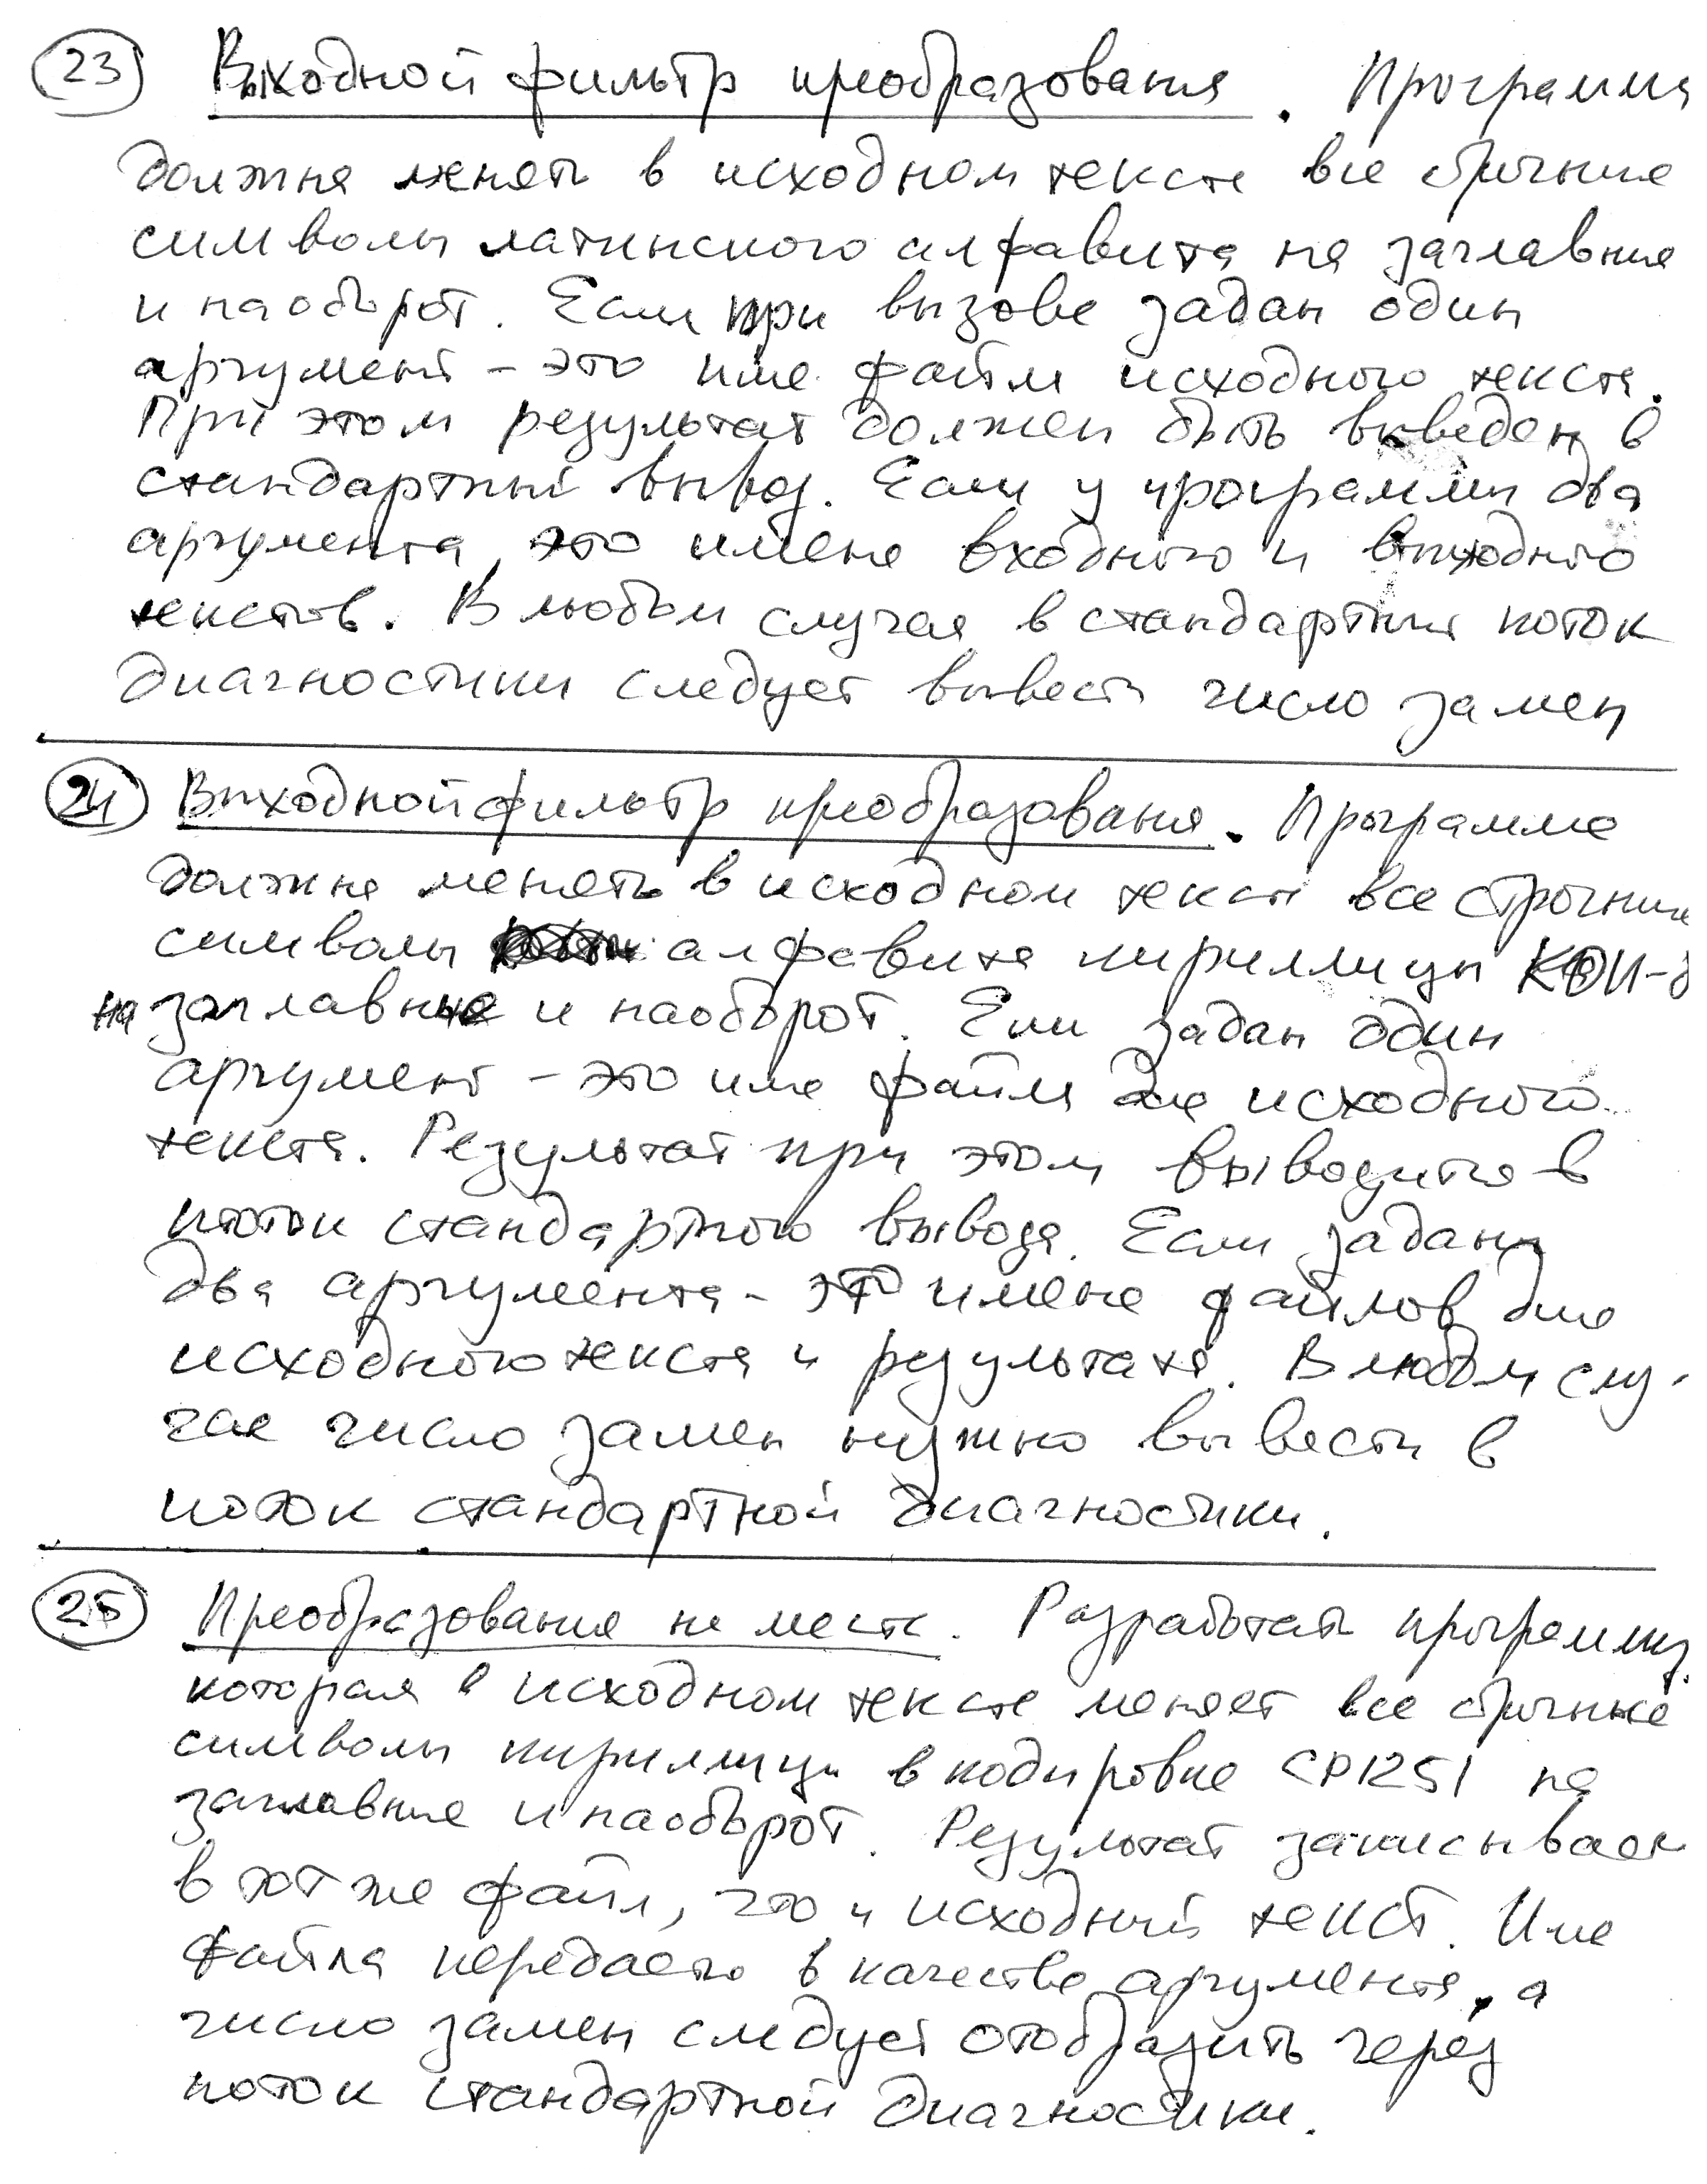 23 Выходной фильтр преобразования. Программа
должна менять в исходном тексте все строчные
символы латинского алфавита на заглавные
и наоборот. Если при вызове задан один
аргумент – это имя файла исходного текста.
При этом результат должен быть выведен в
стандартный вывод. Если у программы два
аргумента, это имена входного и выходного
текстов. В любом случае в стандартный поток
диагностики следует вывести число замен
24 Выходной фильтр преобразования. Программа
должна менять в исходном тексте все строчные
символы алфавита кириллицы КОИ-8
на заглавные и наоборот. Если задан один
аргумент – это имя файла для исходного
текста. Результат при этом выводится в
поток стандартного вывода. Если заданы
два аргумента – это имена файлов для
исходного текста и результата. В любом слу-
чае число замен нужно вывести в
поток стандартной диагностики.
25 Преобразования на месте. Разработать программу,
которая в исходном тексте меняет все строчные
символы кириллицы в кодировке CP1251 на
заглавные и наоборот. Результат записывает
в тот же файл, что и исходный текст. Имя
файла передается в качестве аргумента, а
число замен следует отобразить через
поток стандартной диагностики.